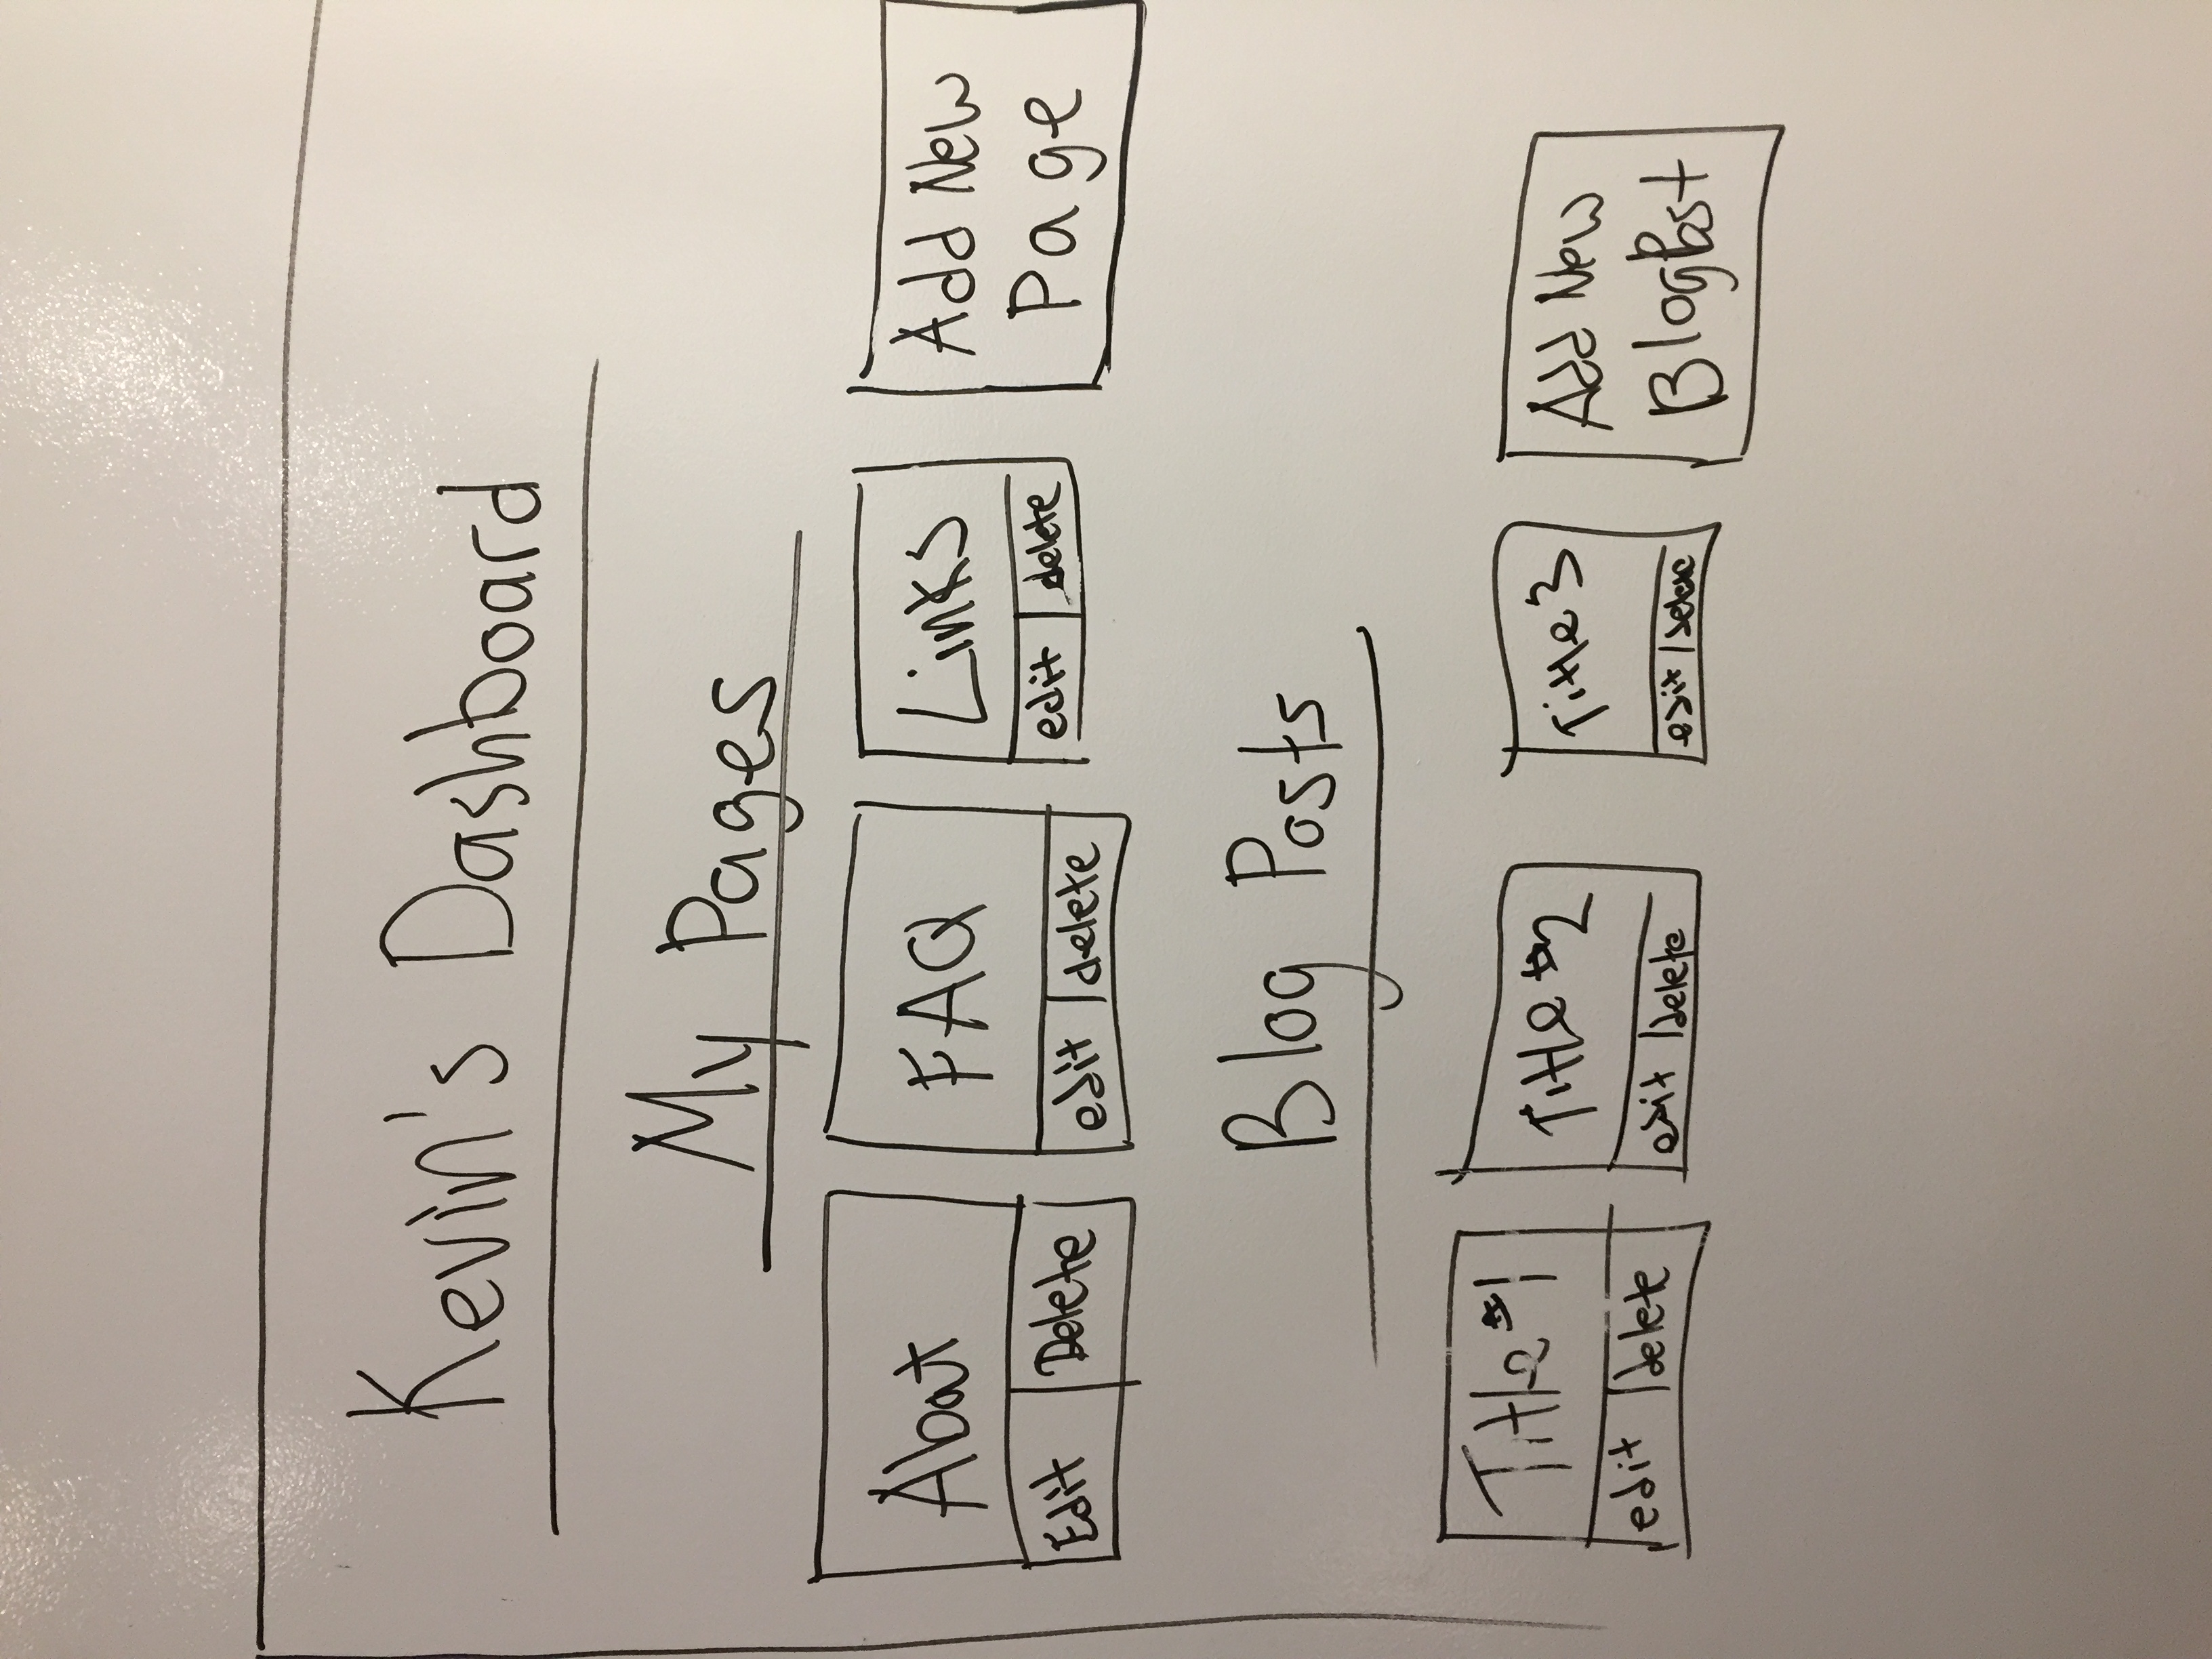 Kevin's Dashboard
My Pages
About
Edit Delete
FAQ
edit delete
Links
edit delete
Add New
Page
Blog Posts
Title #1
edit delete
Title #2
edit delete
Title 3
edit delete
Add New
BlogPost